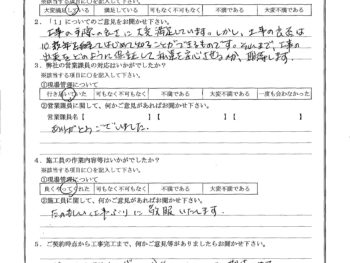 ※該当する項目に○を記入して下さい。
大変満足している 満足している 可も無く不可も無く 不満である 大変不満である
2．「1」についてのご意見をお聞かせ下さい。
工事の手際の良さに大変満足しています。しかし、工事の良否は
10数年を経てはじめて知ることができるものです。
3．弊社の営業課員の対応はいかがでしたか？
※該当する項目に○を記入して下さい。
①現場管理について
行き届いていた 可もなく不可もなく 不満である 一度も会わなかった
②営業課員に関して、何かご意見があればお聞かせ下さい。
営業課員名【 】【 】【 】
ありがとうございました。
4．施工員の作業内容等はいかがでしたか？
※該当する項目に○を記入して下さい。
①現場管理について
良くやってくれた 可もなく不可もなく 不満である 大変不満である
②施工員に関して、何かご意見があればお聞かせ下さい。
敬服いたします。
5．ご契約時点から工事完工まで、何かご意見等がありましたらお聞かせ下さい。